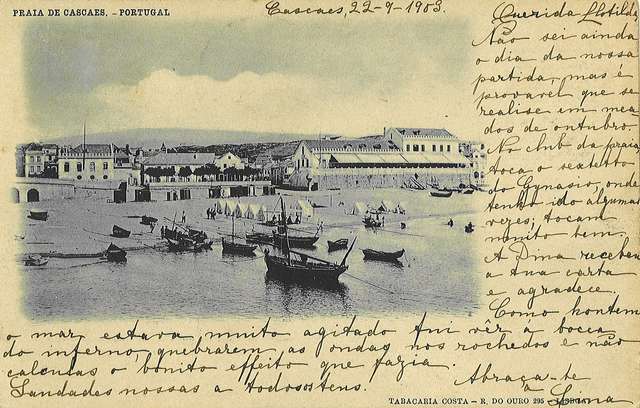 PRAIA DE CASCAES. - PORTUGAL
Cascaes, 22-9-1903.
Querida Clotilde
Não sei ainda
o dia da nossa
partida, mas é
provavel que se
realise em mea
dos de outubro.
No club da praia
toca o sextetto
do Gymnasio, onde
tenho ido algumas
vezes; tocam
muito bem.
A Dina recebeu
a tua carta
e agradece.
Como hontem
o mar estava muito agitado fui vêr á bocca
do inferno, quebrarem as ondas nos rochedos e não
calculas o bonito effeito que fazia.
Saudades nossas a todos os teus.
Abraça-te
a
Lima
TABACARIA COSTA - R. DO OURO 295 - LISBOA